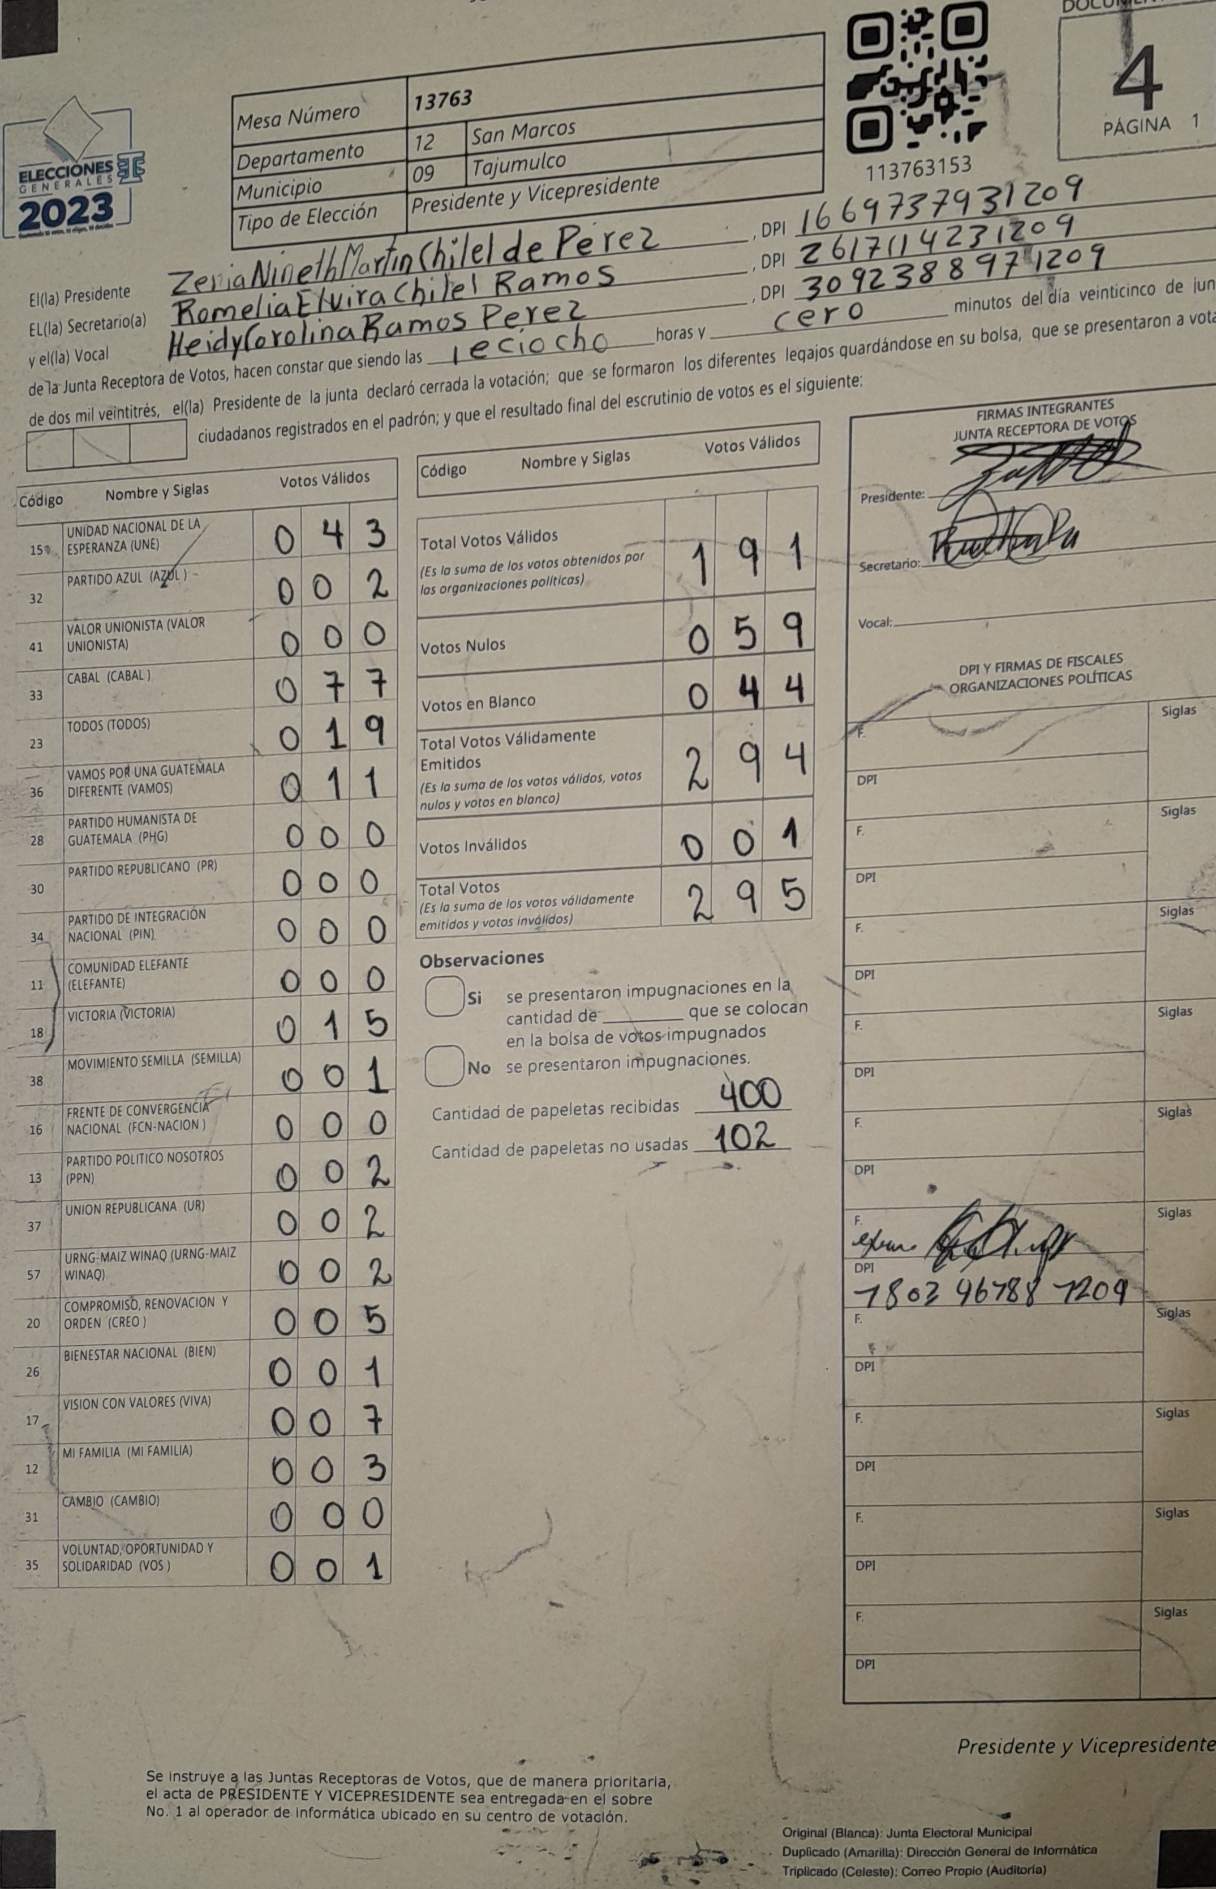 4
PÁGINA 1
ELECCIONES
GENERALES
2023
Mesa Número 13763
Departamento 12 San Marcos
Municipio 09 Tajumulco
Tipo de Elección Presidente y Vicepresidente
113763153
El(la) Presidente Zenia Nineth Martin Chilel de Perez , DPI 1669737931209
EL(la) Secretario(a) Romelia Elvira Chilel Ramos , DPI 2617114231209
y el(la) Vocal Heidy Carolina Ramos Perez , DPI 3092388971209
de la Junta Receptora de Votos, hacen constar que siendo las horas y cero minutos del día veinticinco de jun
de dos mil veintitrés, el(la) Presidente de la junta declaró cerrada la votación; que se formaron los diferentes legajos guardándose en su bolsa, que se presentaron a vota
ciudadanos registrados en el padrón; y que el resultado final del escrutinio de votos es el siguiente:
Código Nombre y Siglas Votos Válidos
15 UNIDAD NACIONAL DE LA ESPERANZA (UNE) 0 4 3
32 PARTIDO AZUL (AZUL) 0 0 2
41 VALOR UNIONISTA (VALOR UNIONISTA) 0 0 0
33 CABAL (CABAL ) 0 7 7
23 TODOS (TODOS) 0 1 9
36 VAMOS POR UNA GUATEMALA DIFERENTE (VAMOS) 0 1 1
28 PARTIDO HUMANISTA DE GUATEMALA (PHG) 0 0 0
30 PARTIDO REPUBLICANO (PR) 0 0 0
34 PARTIDO DE INTEGRACIÓN NACIONAL (PIN) 0 0 0
11 COMUNIDAD ELEFANTE (ELEFANTE) 0 0 0
18 VICTORIA (VICTORIA) 0 1 5
38 MOVIMIENTO SEMILLA (SEMILLA) 0 0 1
16 FRENTE DE CONVERGENCIA NACIONAL (FCN-NACION ) 0 0 0
13 PARTIDO POLITICO NOSOTROS (PPN) 0 0 2
37 UNION REPUBLICANA (UR) 0 0 2
57 URNG-MAIZ WINAQ (URNG-MAIZ WINAQ) 0 0 2
20 COMPROMISO, RENOVACION Y ORDEN (CREO ) 0 0 5
26 BIENESTAR NACIONAL (BIEN) 0 0 1
17 VISION CON VALORES (VIVA) 0 0 7
12 MI FAMILIA (MI FAMILIA) 0 0 3
31 CAMBIO (CAMBIO) 0 0 0
35 VOLUNTAD, OPORTUNIDAD Y SOLIDARIDAD (VOS ) 0 0 1
Código Nombre y Siglas Votos Válidos
Total Votos Válidos
(Es la suma de los votos obtenidos por
las organizaciones políticas) 1 9 1
Votos Nulos 0 5 9
Votos en Blanco 0 4 4
Total Votos Válidamente
Emitidos
(Es la suma de los votos válidos, votos
nulos y votos en blanco) 2 9 4
Votos Inválidos 0 0 1
Total Votos
(Es la suma de los votos válidamente
emitidos y votos inválidos) 2 9 5
Observaciones
Si se presentaron impugnaciones en la
cantidad de ________ que se colocan
en la bolsa de votos impugnados
No se presentaron impugnaciones.
Cantidad de papeletas recibidas 400
Cantidad de papeletas no usadas 102
FIRMAS INTEGRANTES
JUNTA RECEPTORA DE VOTOS
Presidente:
Secretario:
Vocal:
DPI Y FIRMAS DE FISCALES
ORGANIZACIONES POLÍTICAS
F. Siglas
DPI
F. Siglas
DPI
F. Siglas
DPI
F. Siglas
DPI
F. Siglas
DPI
F. Siglas
DPI 1803 96788 1209
F. Siglas
DPI
F. Siglas
DPI
F. Siglas
DPI
F. Siglas
DPI
Presidente y Vicepresidente
Se instruye a las Juntas Receptoras de Votos, que de manera prioritaria,
el acta de PRESIDENTE Y VICEPRESIDENTE sea entregada en el sobre
No. 1 al operador de informática ubicado en su centro de votación.
Original (Blanca): Junta Electoral Municipal
Duplicado (Amarilla): Dirección General de Informática
Triplicado (Celeste): Correo Propio (Auditoría)